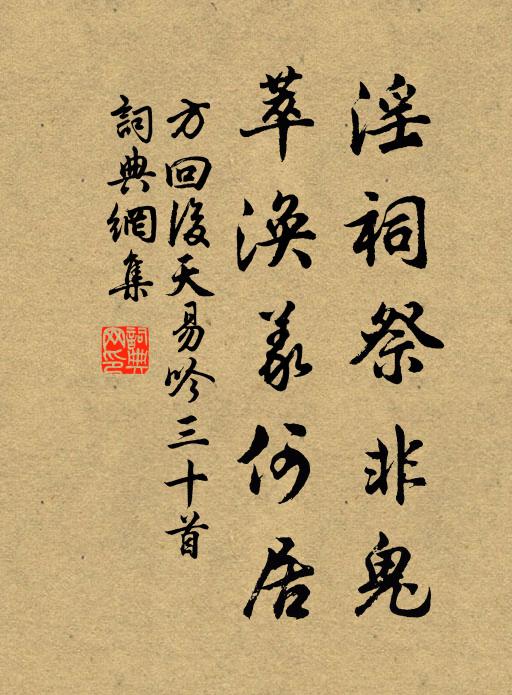 淫祠祭非鬼
萃渙義何居
方回後天易吟三十首
詞典網集
詞典網印